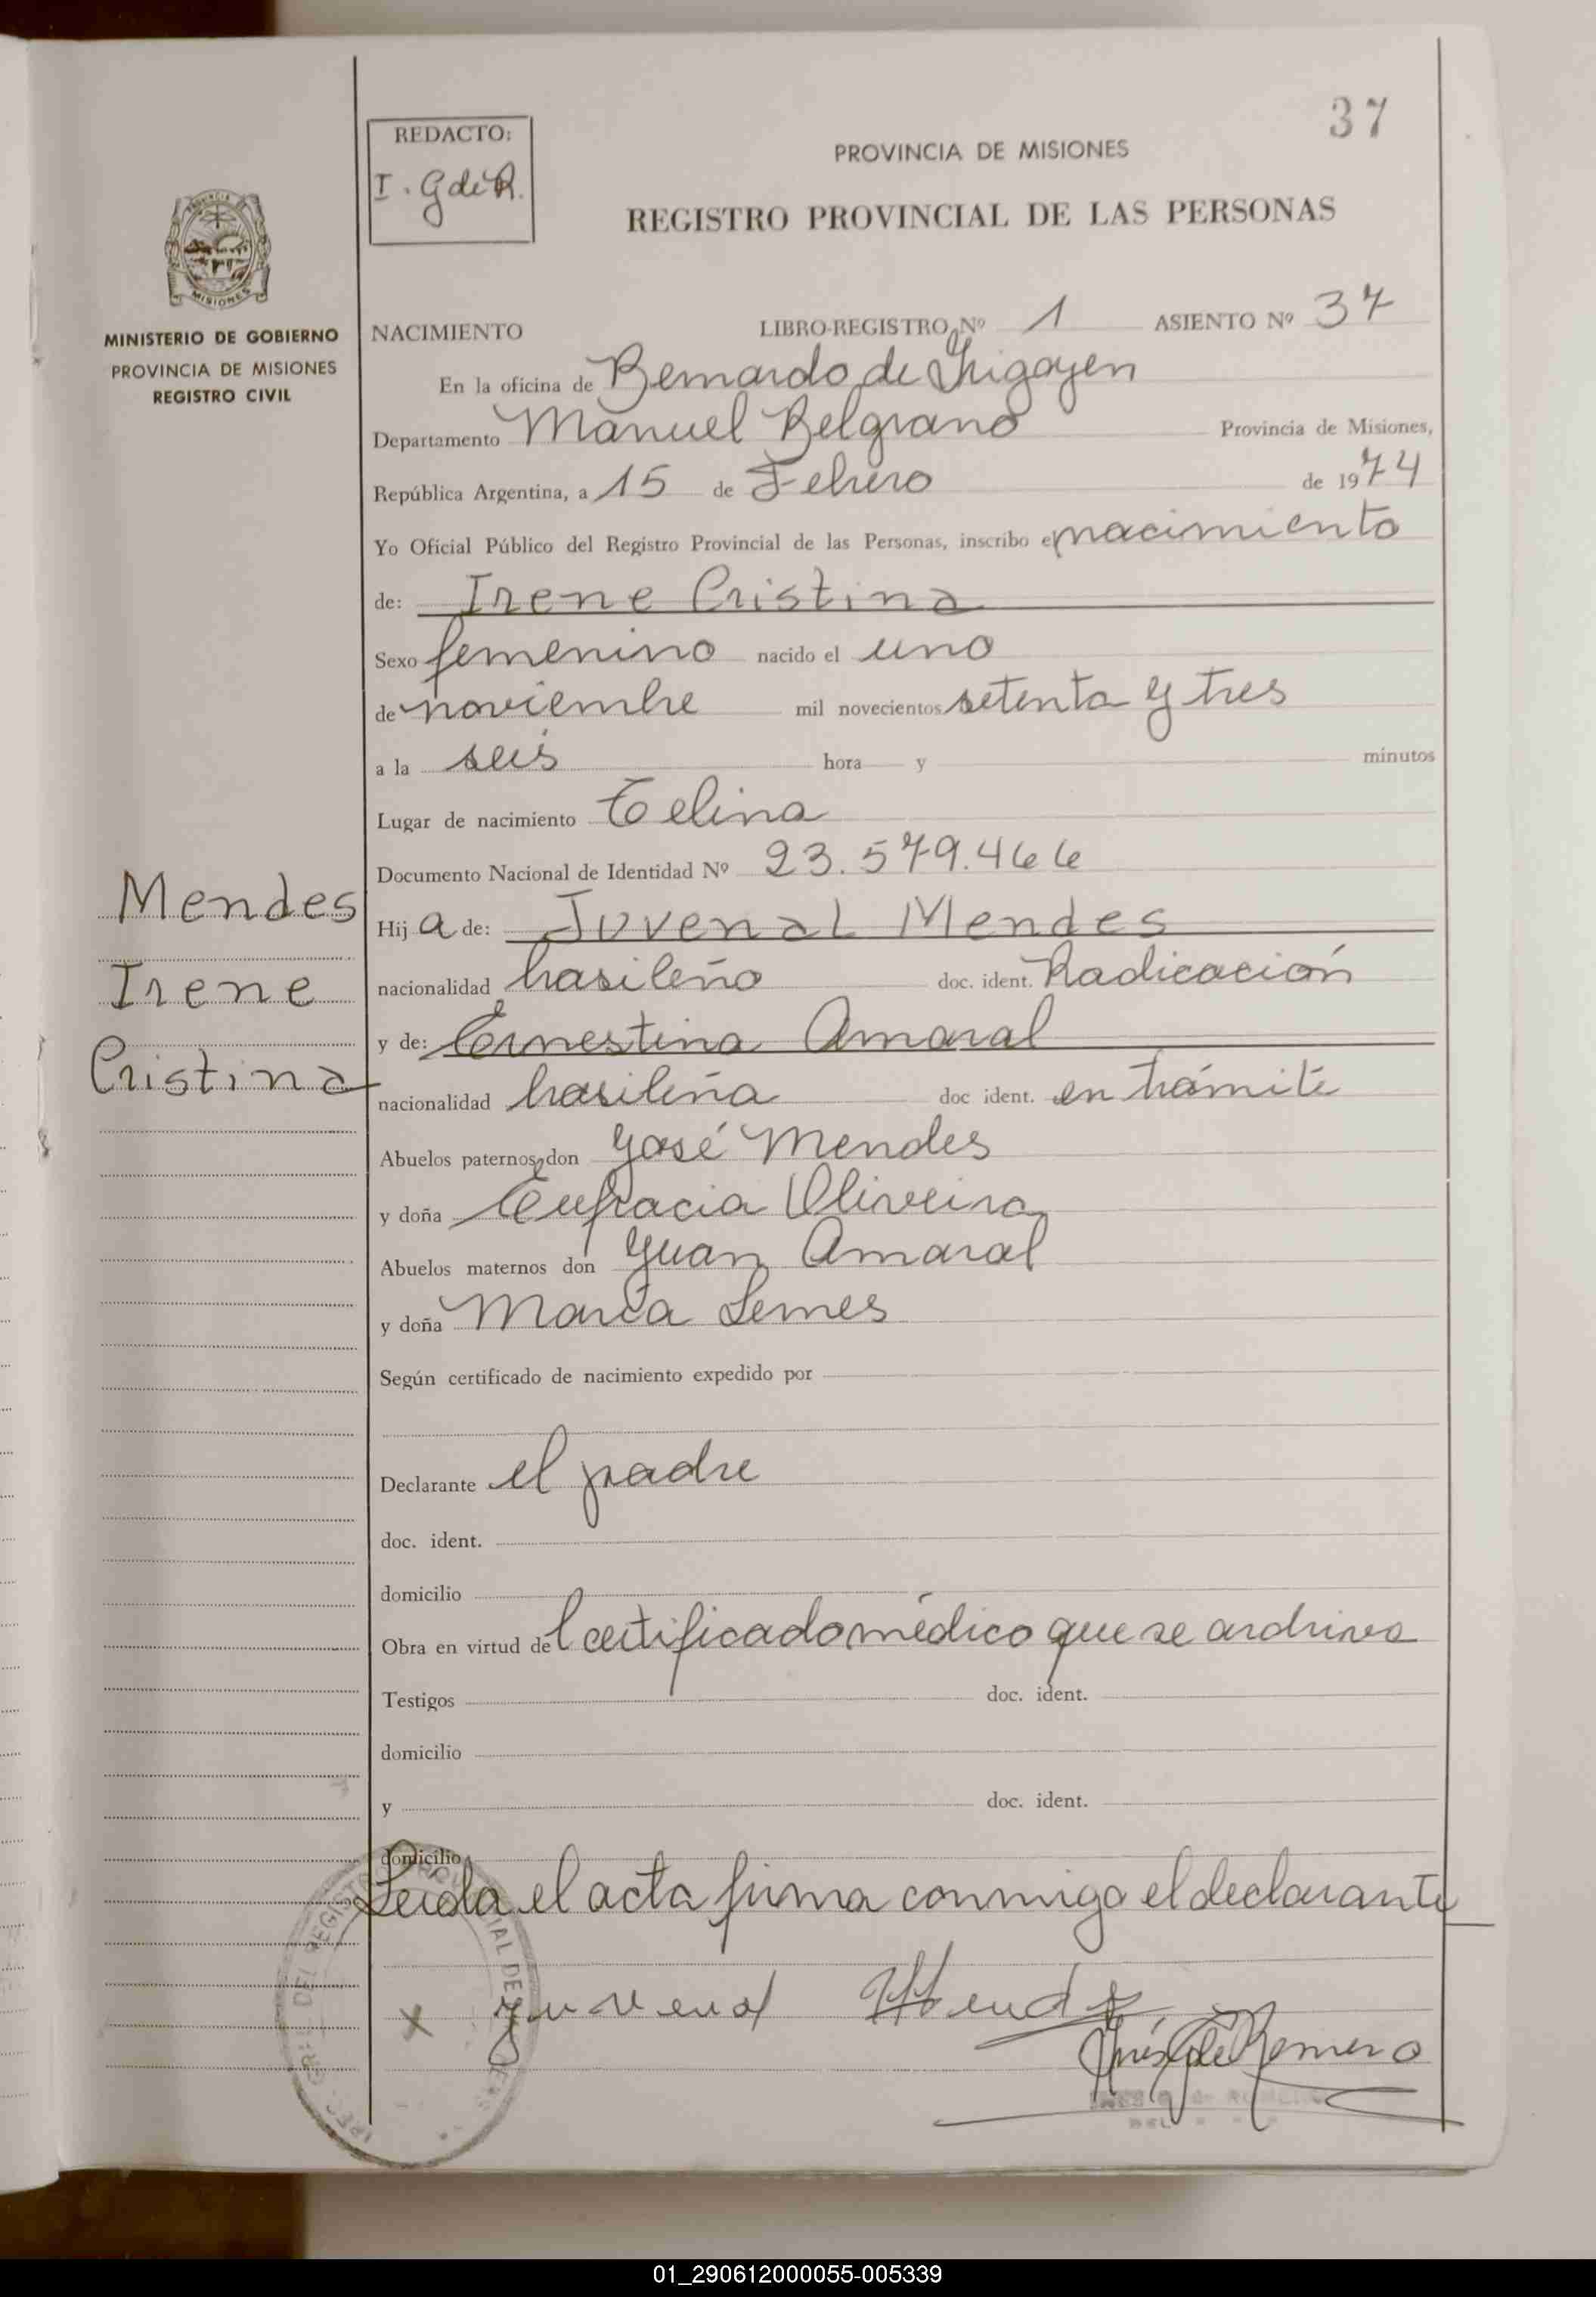 37
REDACTO:
I. G de R.
PROVINCIA DE MISIONES
REGISTRO PROVINCIAL DE LAS PERSONAS
MISIONES
MINISTERIO DE GOBIERNO
PROVINCIA DE MISIONES
REGISTRO CIVIL
NACIMIENTO LIBRO-REGISTRO Nº 1 ASIENTO Nº 37
En la oficina de Bernardo de Irigoyen
Departamento Manuel Belgrano Provincia de Misiones,
República Argentina, a 15 de Febrero de 1974
Yo Oficial Público del Registro Provincial de las Personas, inscribo el nacimiento
de: Irene Cristina
Sexo femenino nacido el uno
de noviembre mil novecientos setenta y tres
a la seis hora y minutos
Lugar de nacimiento Celina
Documento Nacional de Identidad Nº 23.579.466
Mendes
Irene
Cristina
Hija de: Juvenal Mendes
nacionalidad brasileño doc. ident. Radicación
y de: Ernestina Amaral
nacionalidad brasileña doc ident. en trámite
Abuelos paternos, don José Mendes
y doña Eufracia Oliveira
Abuelos maternos don Juan Amaral
y doña María Lemes
Según certificado de nacimiento expedido por
Declarante el padre
doc. ident.
domicilio
Obra en virtud del certificado médico que se archiva
Testigos doc. ident.
domicilio
y doc. ident.
domicilio
Leída el acta firma conmigo el declarante
x Juvenal Mendes
Inés G de Romero
01_290612000055-005339